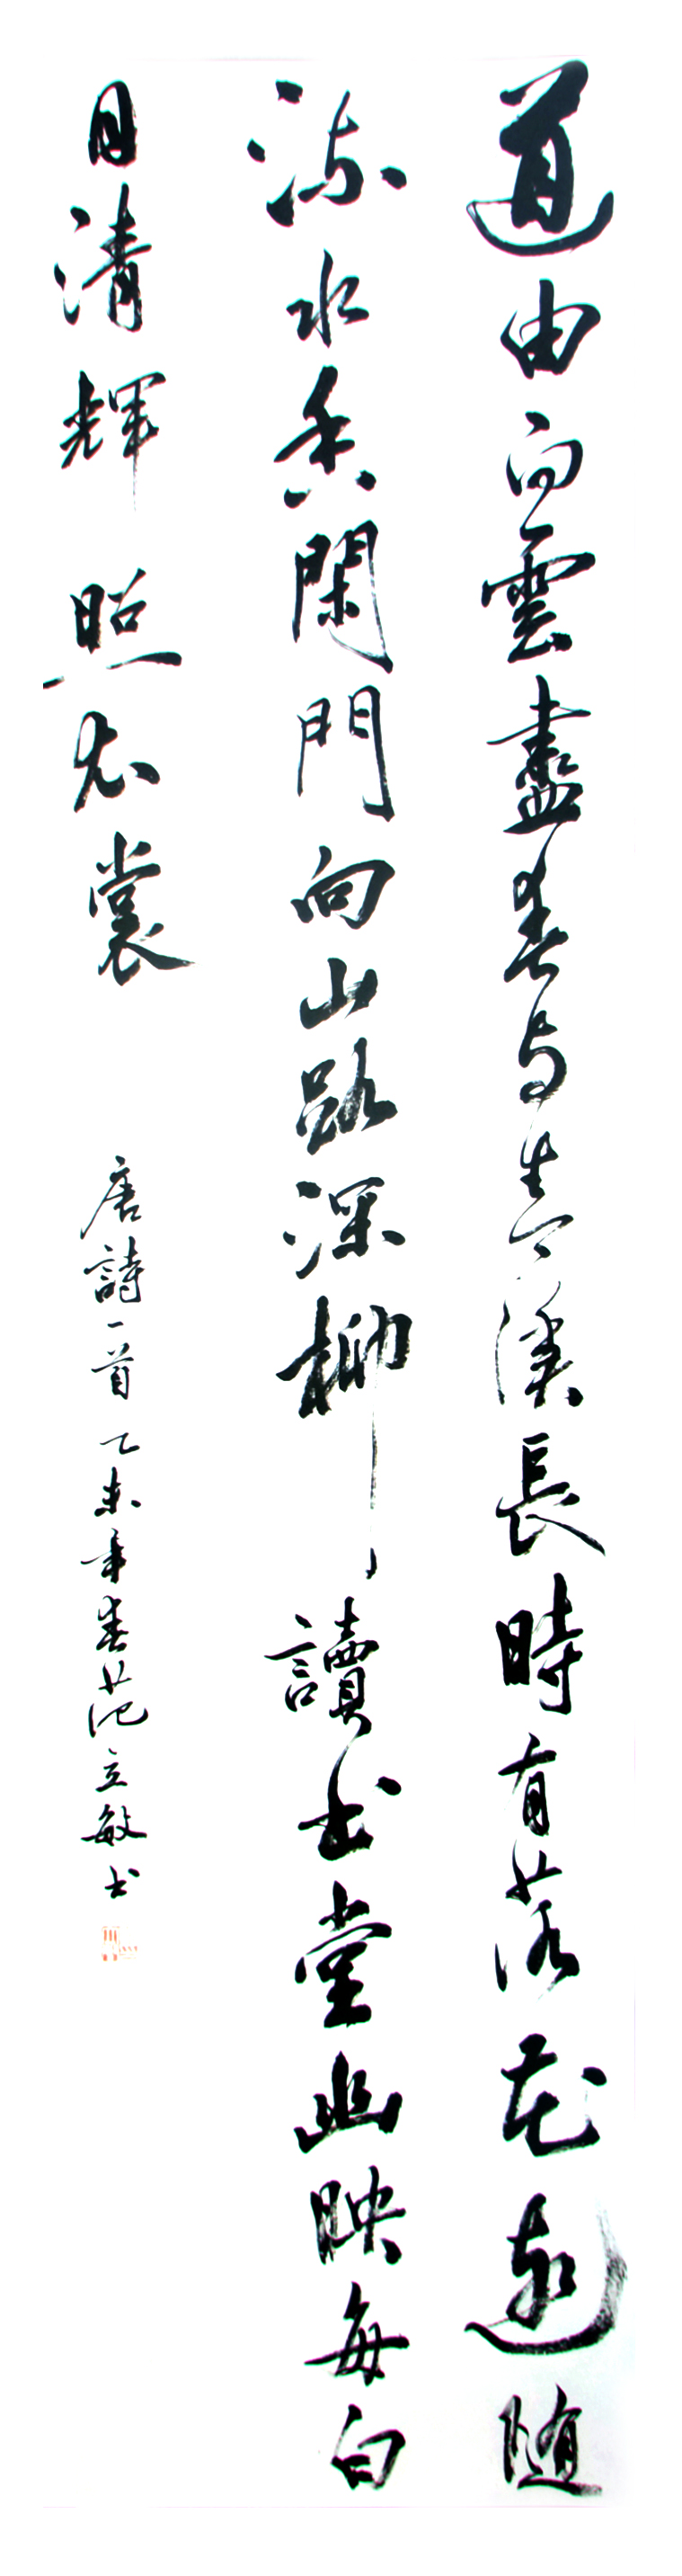 道由白雲盡春与青溪長時有落花遠随
流水香閑門向山路深柳讀书堂幽映每白
日清輝照衣裳
唐詩一首乙未年春范立敏书